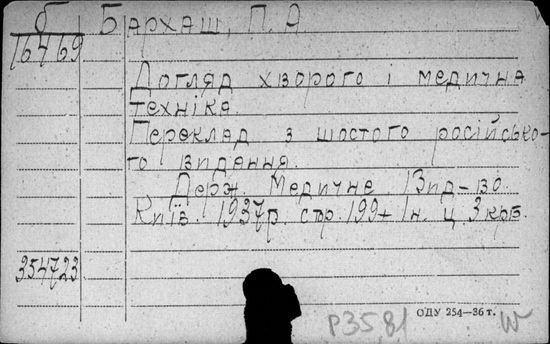 б Бархаш, П. А
16469
Догляд хворого і медична
техніка.
Переклад з шостого російсько-
го видення.
Держ. Медичне Вид-во
Київ. 1937р. стр. 199+1н. ц 3крб.
354723
ОДУ 254—36т.
Р35,81
W